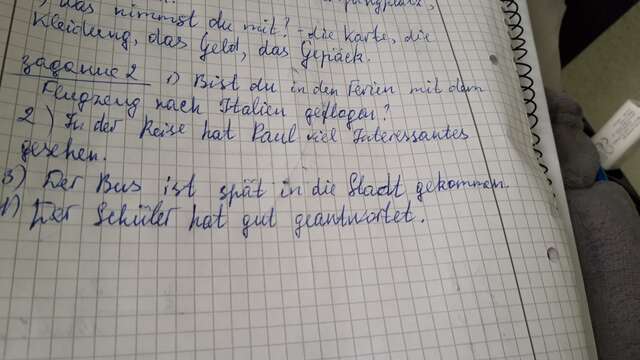 Was nimmst du mit? - die Karte, die
Kleidung, das Geld, das Gepäck.
Задание 2 1) Bist du in den Ferien mit dem
Flugzeug nach Italien geflogen?
2) In der Reise hat Paul viel Interessantes
gesehen.
3) Der Bus ist spät in die Stadt gekommen.
4) Der Schüler hat gut geantwortet.